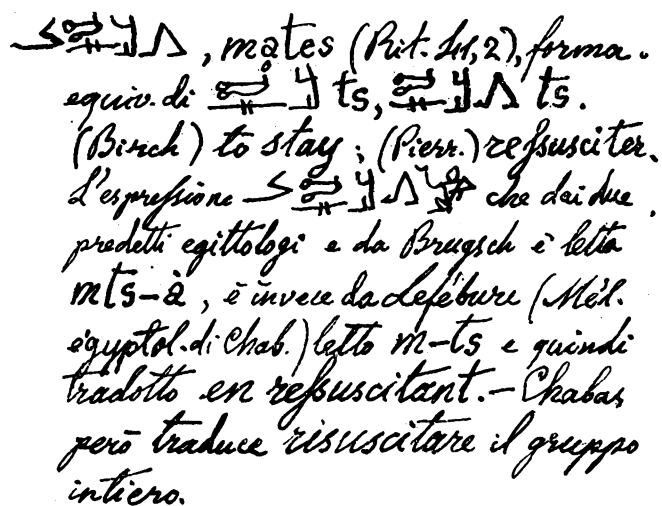 , mates (Rit. 41, 2), forma
equiv. di ts, ts.
(Birch) to stay; (Pierr.) reſsusciter.
L'espreſsione che dai due
predetti egittologi e da Brugsch è letta
mts-à, è invece da Lefébure (Mél.
égyptol. di Chab.) letto m-ts e quindi
tradotto en reſsuscitant. - Chabas
però traduce risuscitare il gruppo
intiero.